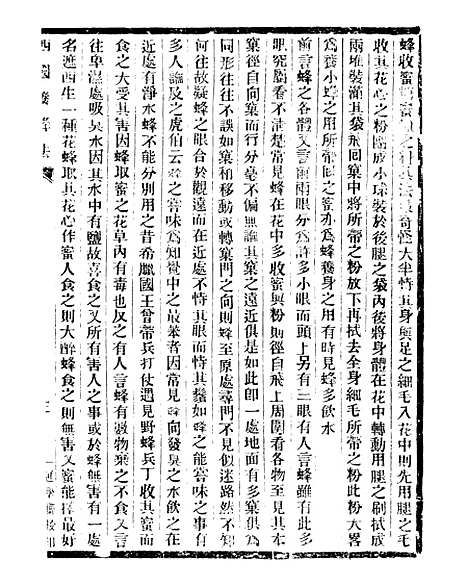 蜂收蜜之奇性大半恃其身與足之細毛入花中則先用腿之毛
收其花心之粉團成小球裝於後腿之袋內後將身體在花中轉動用腿之刷拭成
兩堆裝滿其袋飛回窠中將所帶之粉放下再拭去全身細毛所帶之粉此粉大畧
為養小蜂之用而蜜亦為蜂養身之用有時見蜂多飲水
前言蜂之各體又言前兩眼分為許多小眼而頭上另有三眼有人言蜂雖有此多
眼究屬看不清楚常見蜂在花中多收蜜與粉則徑自飛上周圍看各物至見其本
窠徑自向窠而行分毫不偏無論其窠之遠近俱是如此即一處地面有多窠俱為
同形往往不誤如窠稍移動或轉窠門之向則蜂至原處尋門不見似迷路然不知
何往故疑蜂之眼合於觀遠而在近處不恃其眼而恃其鬚如蜂之能嘗味之事有
多人論及之虎伯云蜂之嘗味為知覺中之最笨者因常見蜂向發臭之水飲之在
近處有淨水蜂不能分別用之昔希臘國王曾帶兵打仗遇見野蜂兵丁收其蜜而
食之大受其害因蜂取蜜之花草內有毒也反之有人言蜂有數物棄之不食又言
往卑濕處吸臭水因其水中有鹽故喜食之又所有害人之事或於蜂無害又有一處
名遮西生一種花蜂取其花心作蜜人食之則大醉蜂食之則無害又蜜能擇最好
西國養蜂法